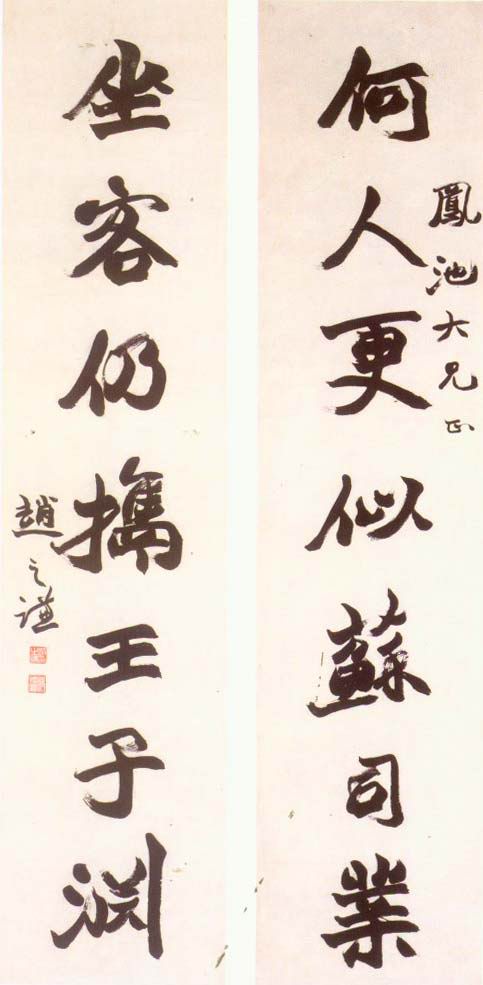 何人更似蘇司業
鳳池大兄正
坐客仍攜王子淵
趙之謙